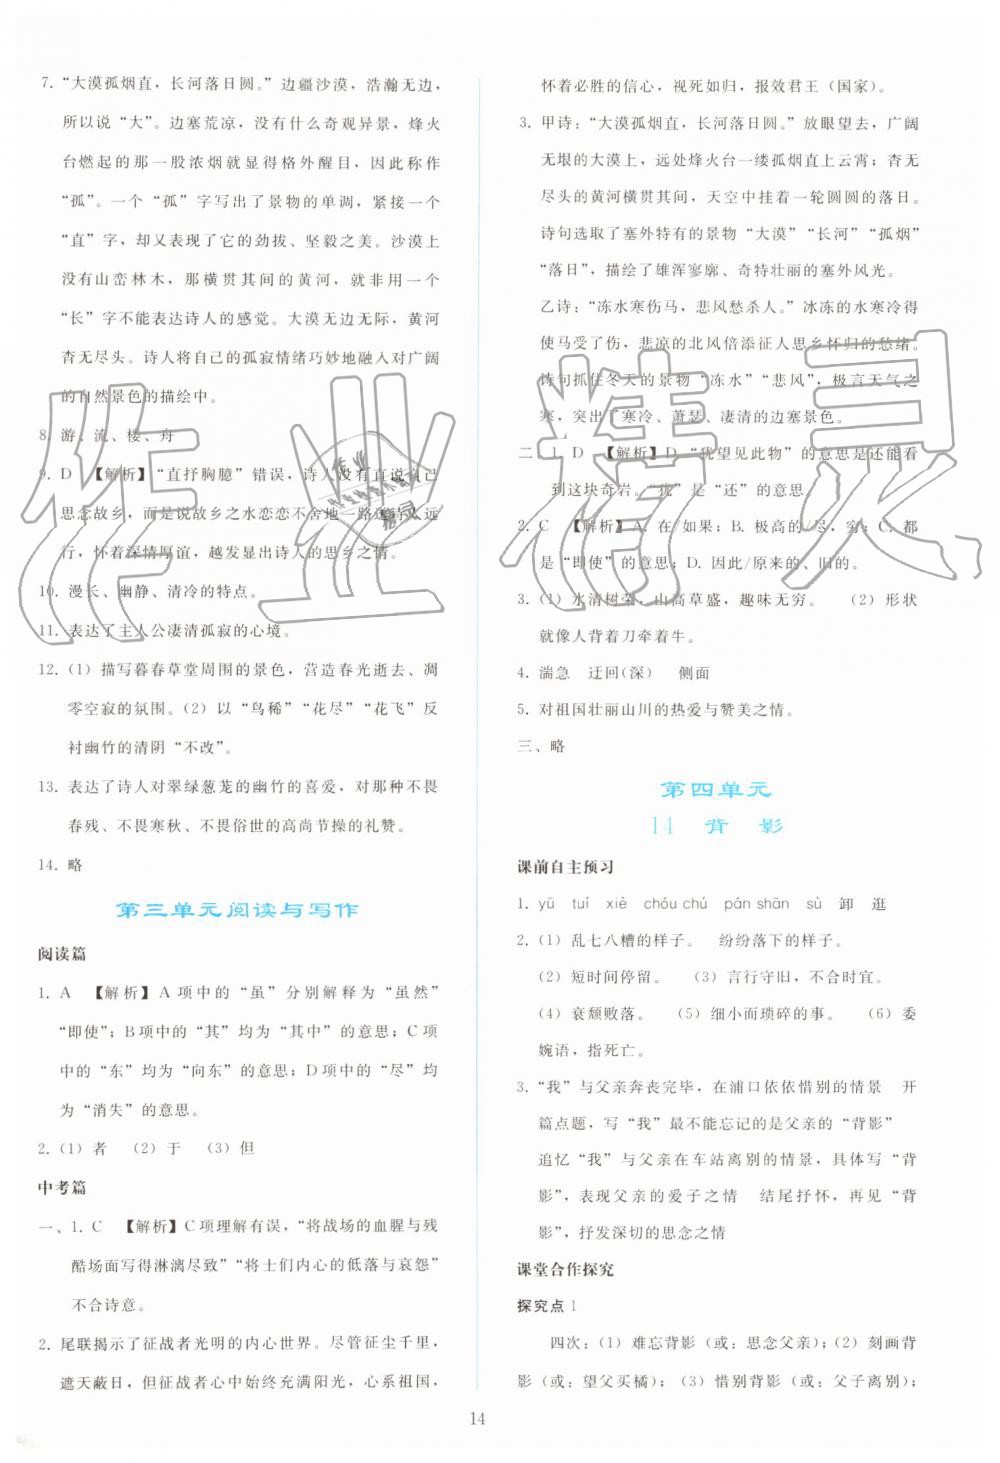 7. “大漠孤烟直，长河落日圆。”边疆沙漠，浩瀚无边，
所以说“大”。边塞荒凉，没有什么奇观异景，烽火
台燃起的那一股浓烟就显得格外醒目，因此称作
“孤”。一个“孤”字写出了景物的单调，紧接一个
“直”字，却又表现了它的劲拔、坚毅之美。沙漠上
没有山峦林木，那横贯其间的黄河，就非用一个
“长”字不能表达诗人的感觉。大漠无边无际，黄河
杳无尽头。诗人将自己的孤寂情绪巧妙地融入对广阔
的自然景色的描绘中。
8. 游、流、楼、舟
9. D 【解析】“直抒胸臆”错误，诗人没有直说自己
思念故乡，而是说故乡之水恋恋不舍地一路送诗人远
行，怀着深情厚谊，越发显出诗人的思乡之情。
10. 漫长、幽静、清冷的特点。
11. 表达了主人公凄清孤寂的心境。
12. (1) 描写暮春草堂周围的景色，营造春光逝去、凋
零空寂的氛围。(2) 以“鸟稀”“花尽”“花飞”反
衬幽竹的清阴“不改”。
13. 表达了诗人对翠绿葱茏的幽竹的喜爱，对那种不畏
春残、不畏寒秋、不畏俗世的高尚节操的礼赞。
14. 略
第三单元阅读与写作
阅读篇
1. A 【解析】A 项中的“虽”分别解释为“虽然”
“即使”；B 项中的“其”均为“其中”的意思；C 项
中的“东”均为“向东”的意思；D 项中的“尽”均
为“消失”的意思。
2. (1) 者 (2) 于 (3) 但
中考篇
一、1. C 【解析】C 项理解有误，“将战场的血腥与残
酷场面写得淋漓尽致”“将士们内心的低落与哀怨”
不合诗意。
2. 尾联揭示了征战者光明的内心世界。尽管征尘千里，
遮天蔽日，但征战者心中始终充满阳光，心系祖国，
怀着必胜的信心，视死如归，报效君王（国家）。
3. 甲诗：“大漠孤烟直，长河落日圆。”放眼望去，广阔
无垠的大漠上，远处烽火台一缕孤烟直上云霄；杳无
尽头的黄河横贯其间，天空中挂着一轮圆圆的落日。
诗句选取了塞外特有的景物“大漠”“长河”“孤烟”
“落日”，描绘了雄浑寥廓、奇特壮丽的塞外风光。
乙诗：“冻水寒伤马，悲风愁杀人。”冰冻的水寒冷得
使马受了伤，悲凉的北风倍添征人思乡怀归的愁绪。
诗句抓住冬天的景物“冻水”“悲风”，极言天气之
寒，突出了寒冷、萧瑟、凄清的边塞景色。
二、1. D 【解析】D. “犹望见此物”的意思是还能看
到这块奇岩。“犹”是“还”的意思。
2. C 【解析】A. 在/如果；B. 极高的/尽，穷；C. 都
是“即使”的意思；D. 因此/原来的、旧的。
3. (1) 水清树荣，山高草盛，趣味无穷。 (2) 形状
就像人背着刀牵着牛。
4. 湍急 迂回(深) 侧面
5. 对祖国壮丽山川的热爱与赞美之情。
三、略
第四单元
14 背 影
课前自主预习
1. yū tuí xiè chóu chú pán shān sù 卸 逛
2. (1) 乱七八糟的样子。 纷纷落下的样子。
(2) 短时间停留。 (3) 言行守旧，不合时宜。
(4) 衰颓败落。 (5) 细小而琐碎的事。 (6) 委
婉语，指死亡。
3. “我”与父亲奔丧完毕，在浦口依依惜别的情景 开
篇点题，写“我”最不能忘记的是父亲的“背影”
追忆“我”与父亲在车站离别的情景，具体写“背
影”，表现父亲的爱子之情 结尾抒怀，再现“背
影”，抒发深切的思念之情
课堂合作探究
探究点 1
四次：(1) 难忘背影（或：思念父亲）；(2) 刻画背
影（或：望父买橘）；(3) 惜别背影（或：父子离别）；
14
作业精灵